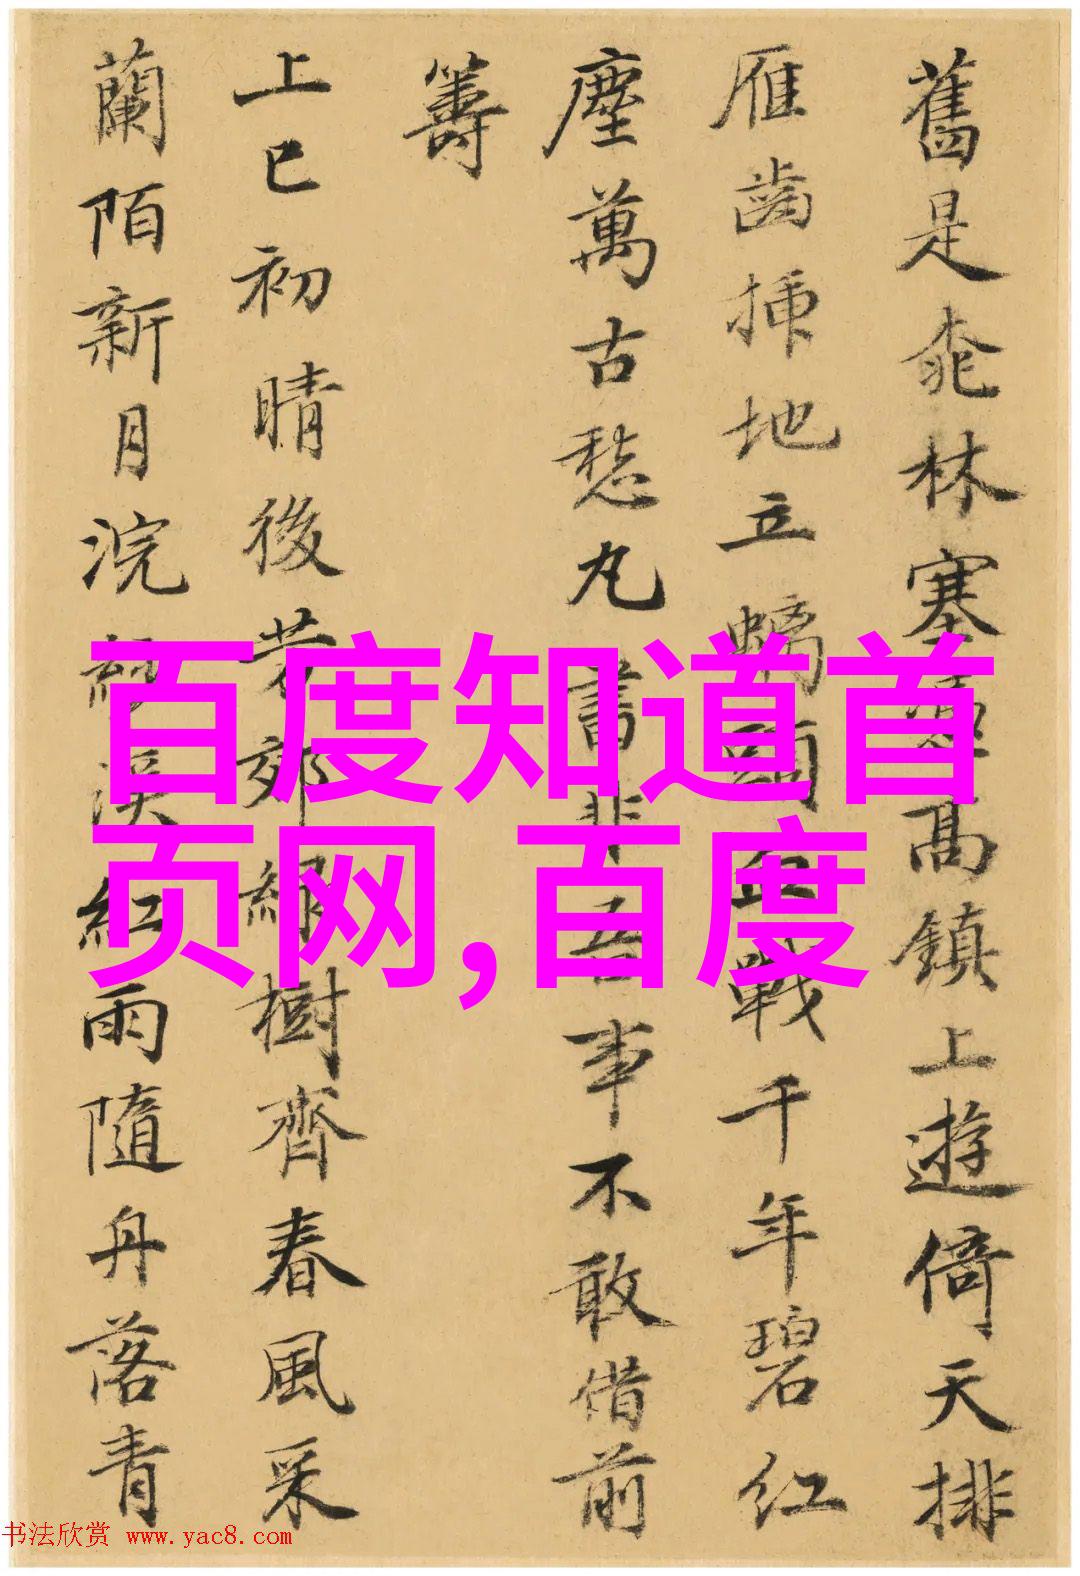 舊是桃林塞高鎮上遊倚天排
雁齒插地立螭頭血戰千年碧紅
塵萬古愁丸書非吾事不敢借前
籌
上巳初晴後芳郊綠樹齊春風采
蘭陌新月浣紗溪紅雨隨舟落青
百度知道首
页网,百度
书法欣赏 www.yac8.com